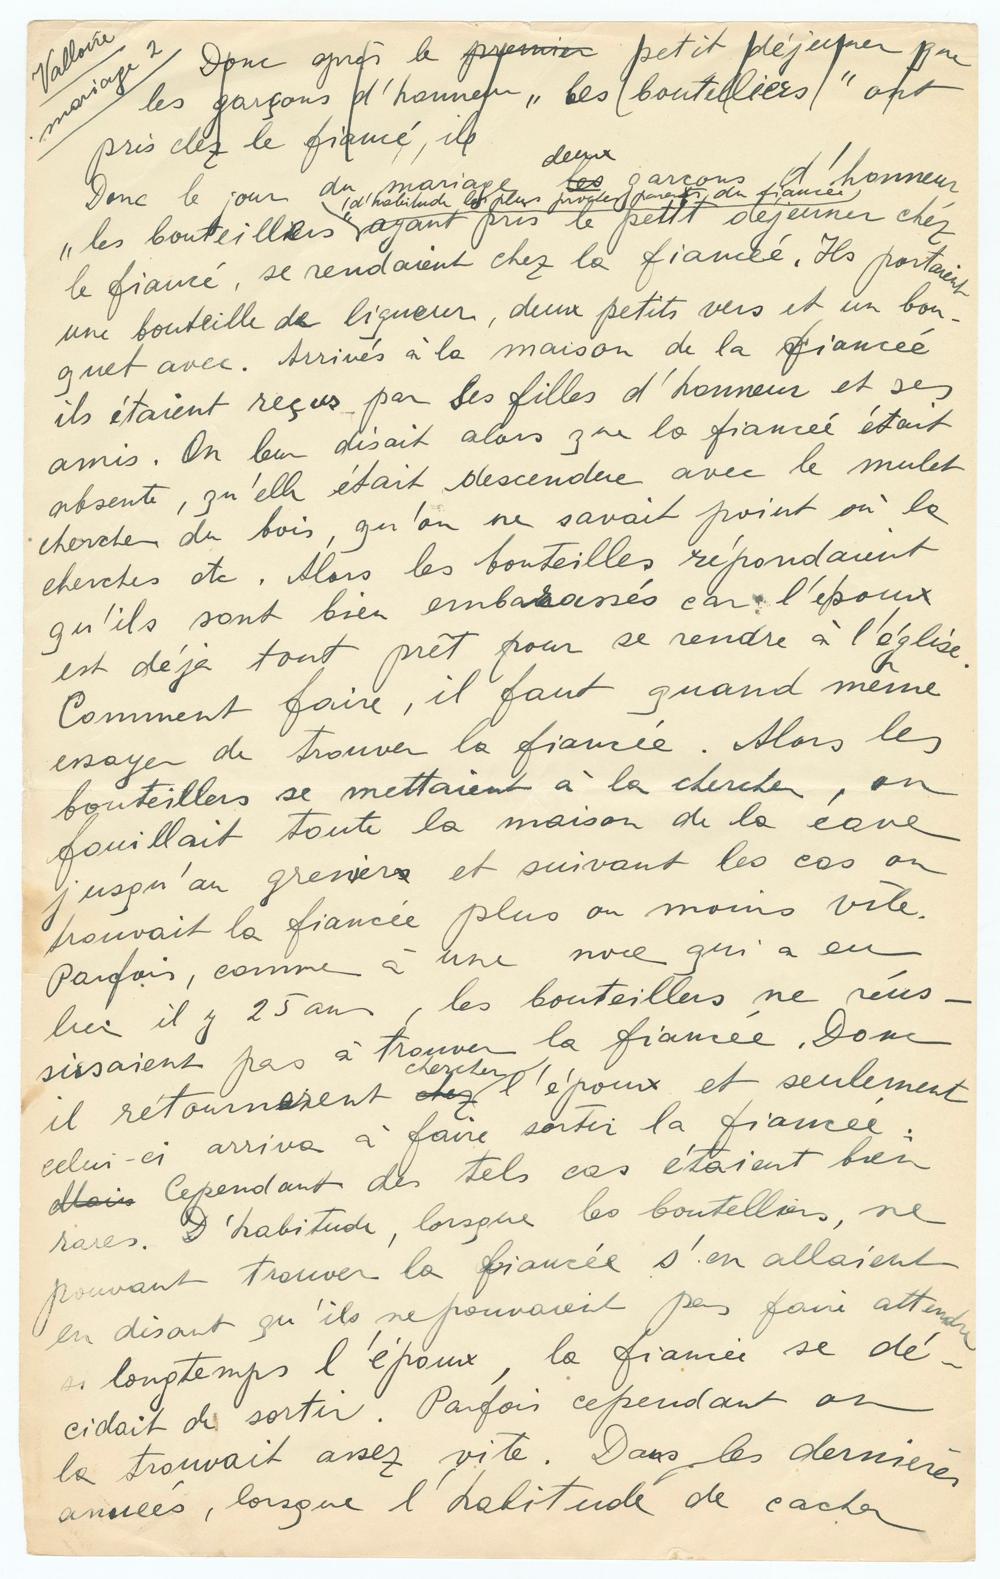 Valloire
mariage 2
Donc après le premier petit déjeuner que
les garçons d'honneur „ les boutelliers " ont
pris chez le fiancé, ils
deux
Donc le jour du mariage les garçons d'honneur
(d'habitude les plus proches parents du fiancé)
„ les bouteilliers " ayant pris le petit déjeuner chez
le fiancé, se rendaient chez la fiancée. Ils portaient
une bouteille de liqueur, deux petits vers et un bou-
quet avec. Arrivés à la maison de la fiancée
ils étaient reçus par les filles d'honneur et ses
amis. On leur disait alors que la fiancée était
absente, qu'elle était descendue avec le mulet
chercher du bois, qu'on ne savait point où la
cherches etc. Alors les bouteilles répondaient
qu'ils sont bien embarassés car l'époux
est déjà tout prêt pour se rendre à l'église.
Comment faire, il faut quand même
essayer de trouver la fiancée. Alors les
bouteillers se mettaient à la chercher, on
fouillait toute la maison de la cave
jusqu'au greniers et suivant les cas on
trouvait la fiancée plus ou moins vite.
Parfois, comme à une noce qui a eu
lieu il y 25 ans, les bouteillers ne réus-
sissaient pas à trouver la fiancée. Donc
chercher
il rétournèrent chez l'époux et seulement
celui-ci arriva à faire sortir la fiancée.
Mais Cependant des tels cas étaient bien
rares. D'habitude, lorsque les boutelliers, ne
pouvant trouver la fiancée s'en allaient
en disant qu'ils ne pouvaient pas faire attendre
si longtemps l'époux, la fiancée se dé-
cidait de sortir. Parfois cependant on
la trouvait assez vite. Dans les dernières
années, lorsque l'habitude de cacher